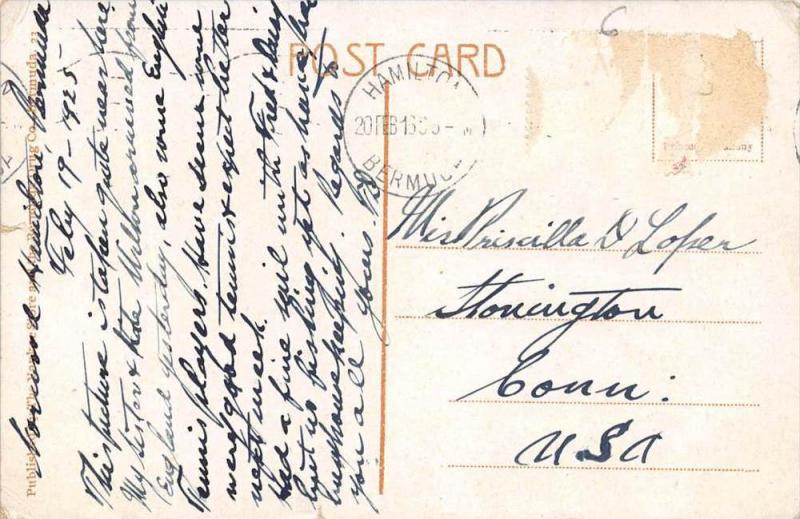 POST CARD
6
HAMILTON
20 FEB
BERMUDA
Miss Priscilla D Loper
Stonington
Conn.
USA
Hamilton, Bermuda
Feby 19-1925-
This picture is taken quite near here.
My sister & Kate Wilson arrived from
England yesterday, also some English
Tennis players. Have seen some
very good tennis & expect better
next week.
Had a fine sail with Fred & Daisy
but no fishing yet as have had
housekeeping. Regards to
you all yours